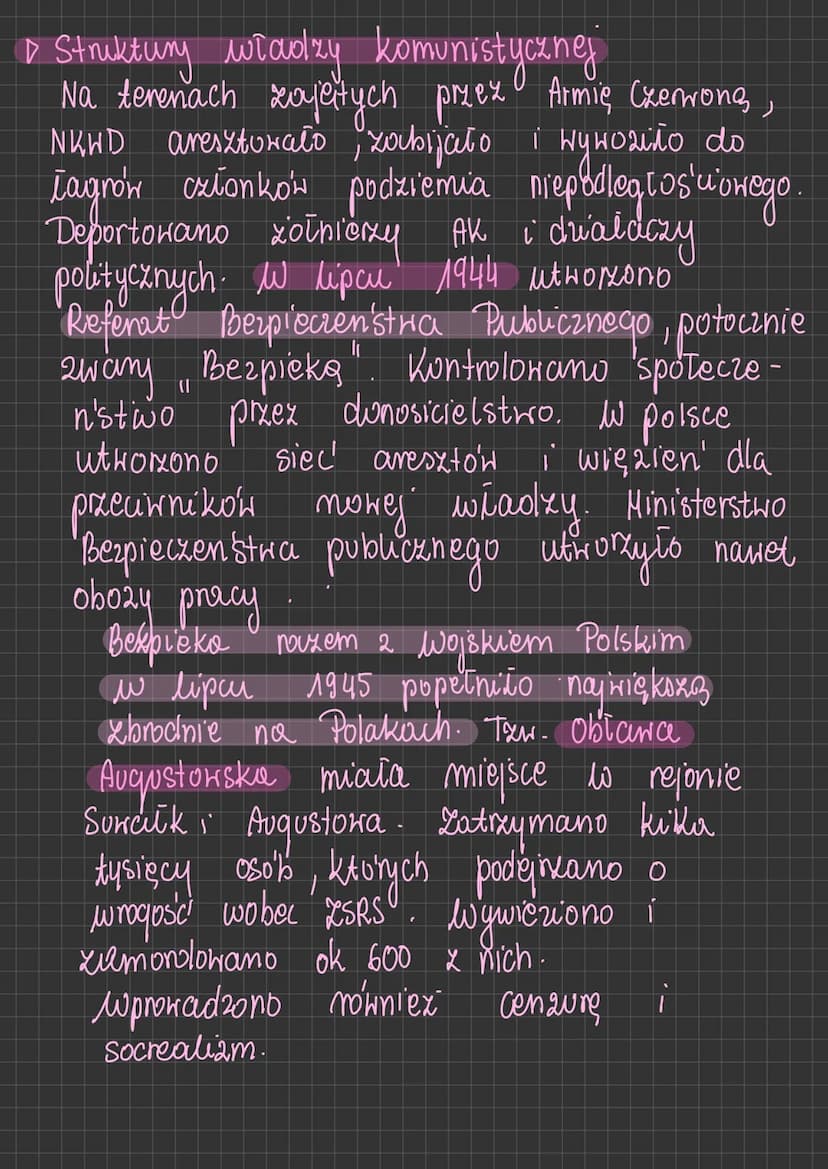 ▷ Struktury władzy komunistycznej
Na terenach zajętych przez Armię Czerwoną,
NKWD aresztowało, zabijało i wywoziło do
łagrów członków podziemia niepodległościowego.
Deportowano żołnierzy AK i działaczy
politycznych. W lipcu 1944 utworzono
Referat Bezpieczeństwa Publicznego, potocznie
zwany „Bezpieką". Kontrolowano społecze-
ństwo przez donosicielstwo. W polsce
utworzono sieć aresztów i więzień dla
przeciwników nowej władzy. Ministerstwo
Bezpieczeństwa publicznego utworzyło nawet
obozy pracy.
Bezpieka razem z Wojskiem Polskim
w lipcu 1945 popełniło największą
zbrodnie na Polakach. Tzw. Obława
Augustowska miała miejsce w rejonie
Suwałk i Augustowa. Zatrzymano kilka
tysięcy osób, których podejrzano o
wrogość wobec ZSRS. Wywieziono i
zamordowano ok 600 z nich.
Wprowadzono również cenzurę i
socrealizm.